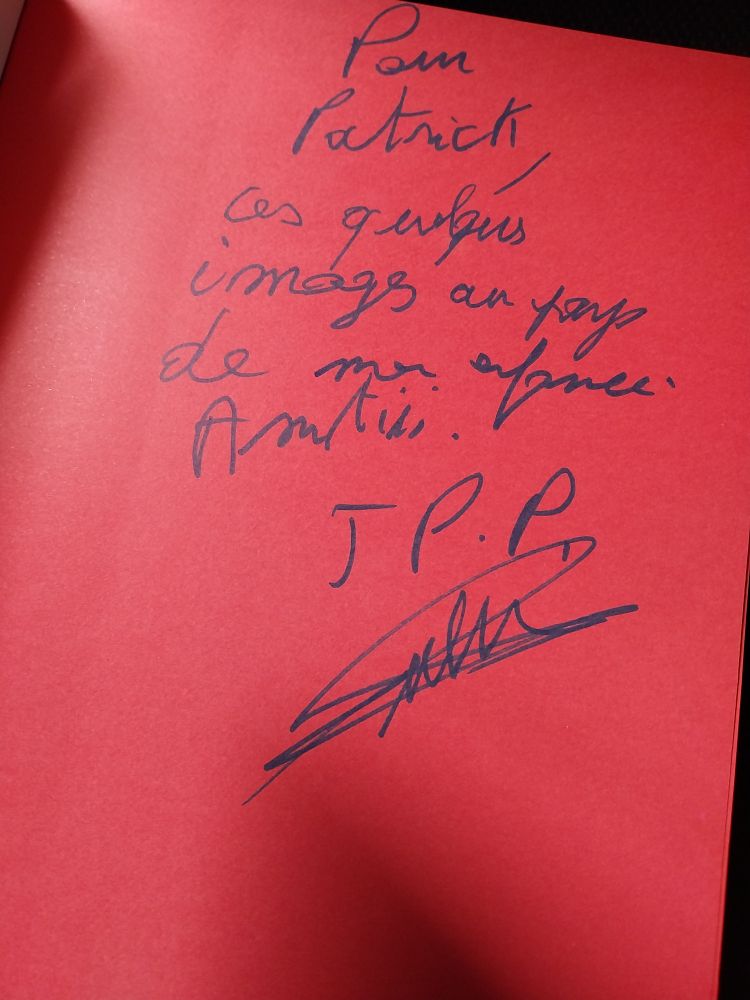 Pour
Patrick,
ces quelques
images au pays
de mon enfance.
Amitiés.
J P. P.